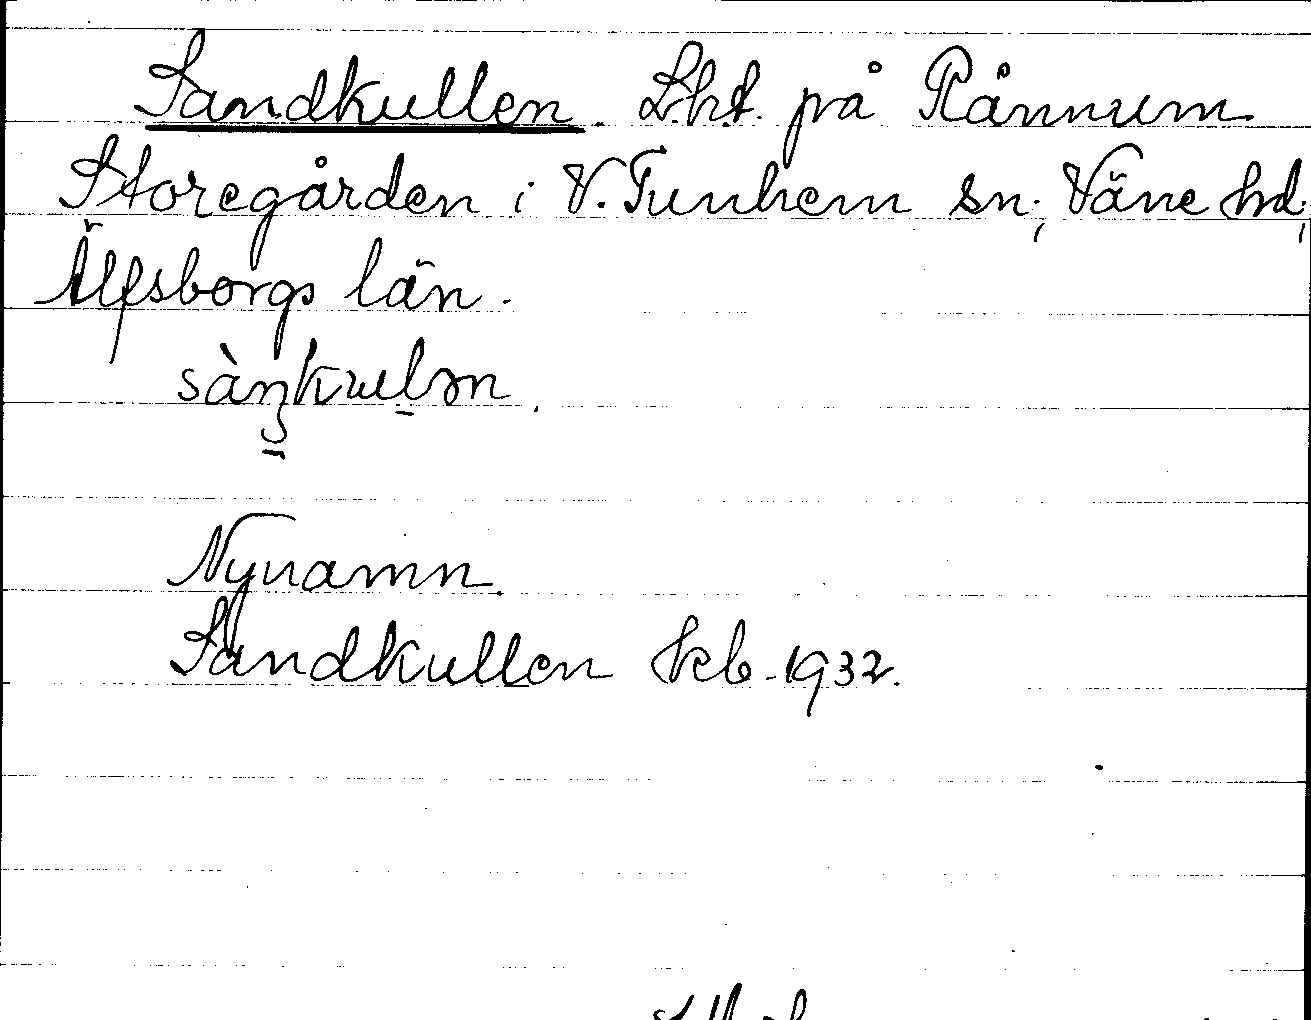 Sandkullen. Lht. på Rånnum
Storegården i V. Tunhem sn, Väne hd,
Älfsborgs län.
Nynamn.
Sandkullen Kb. 1932.